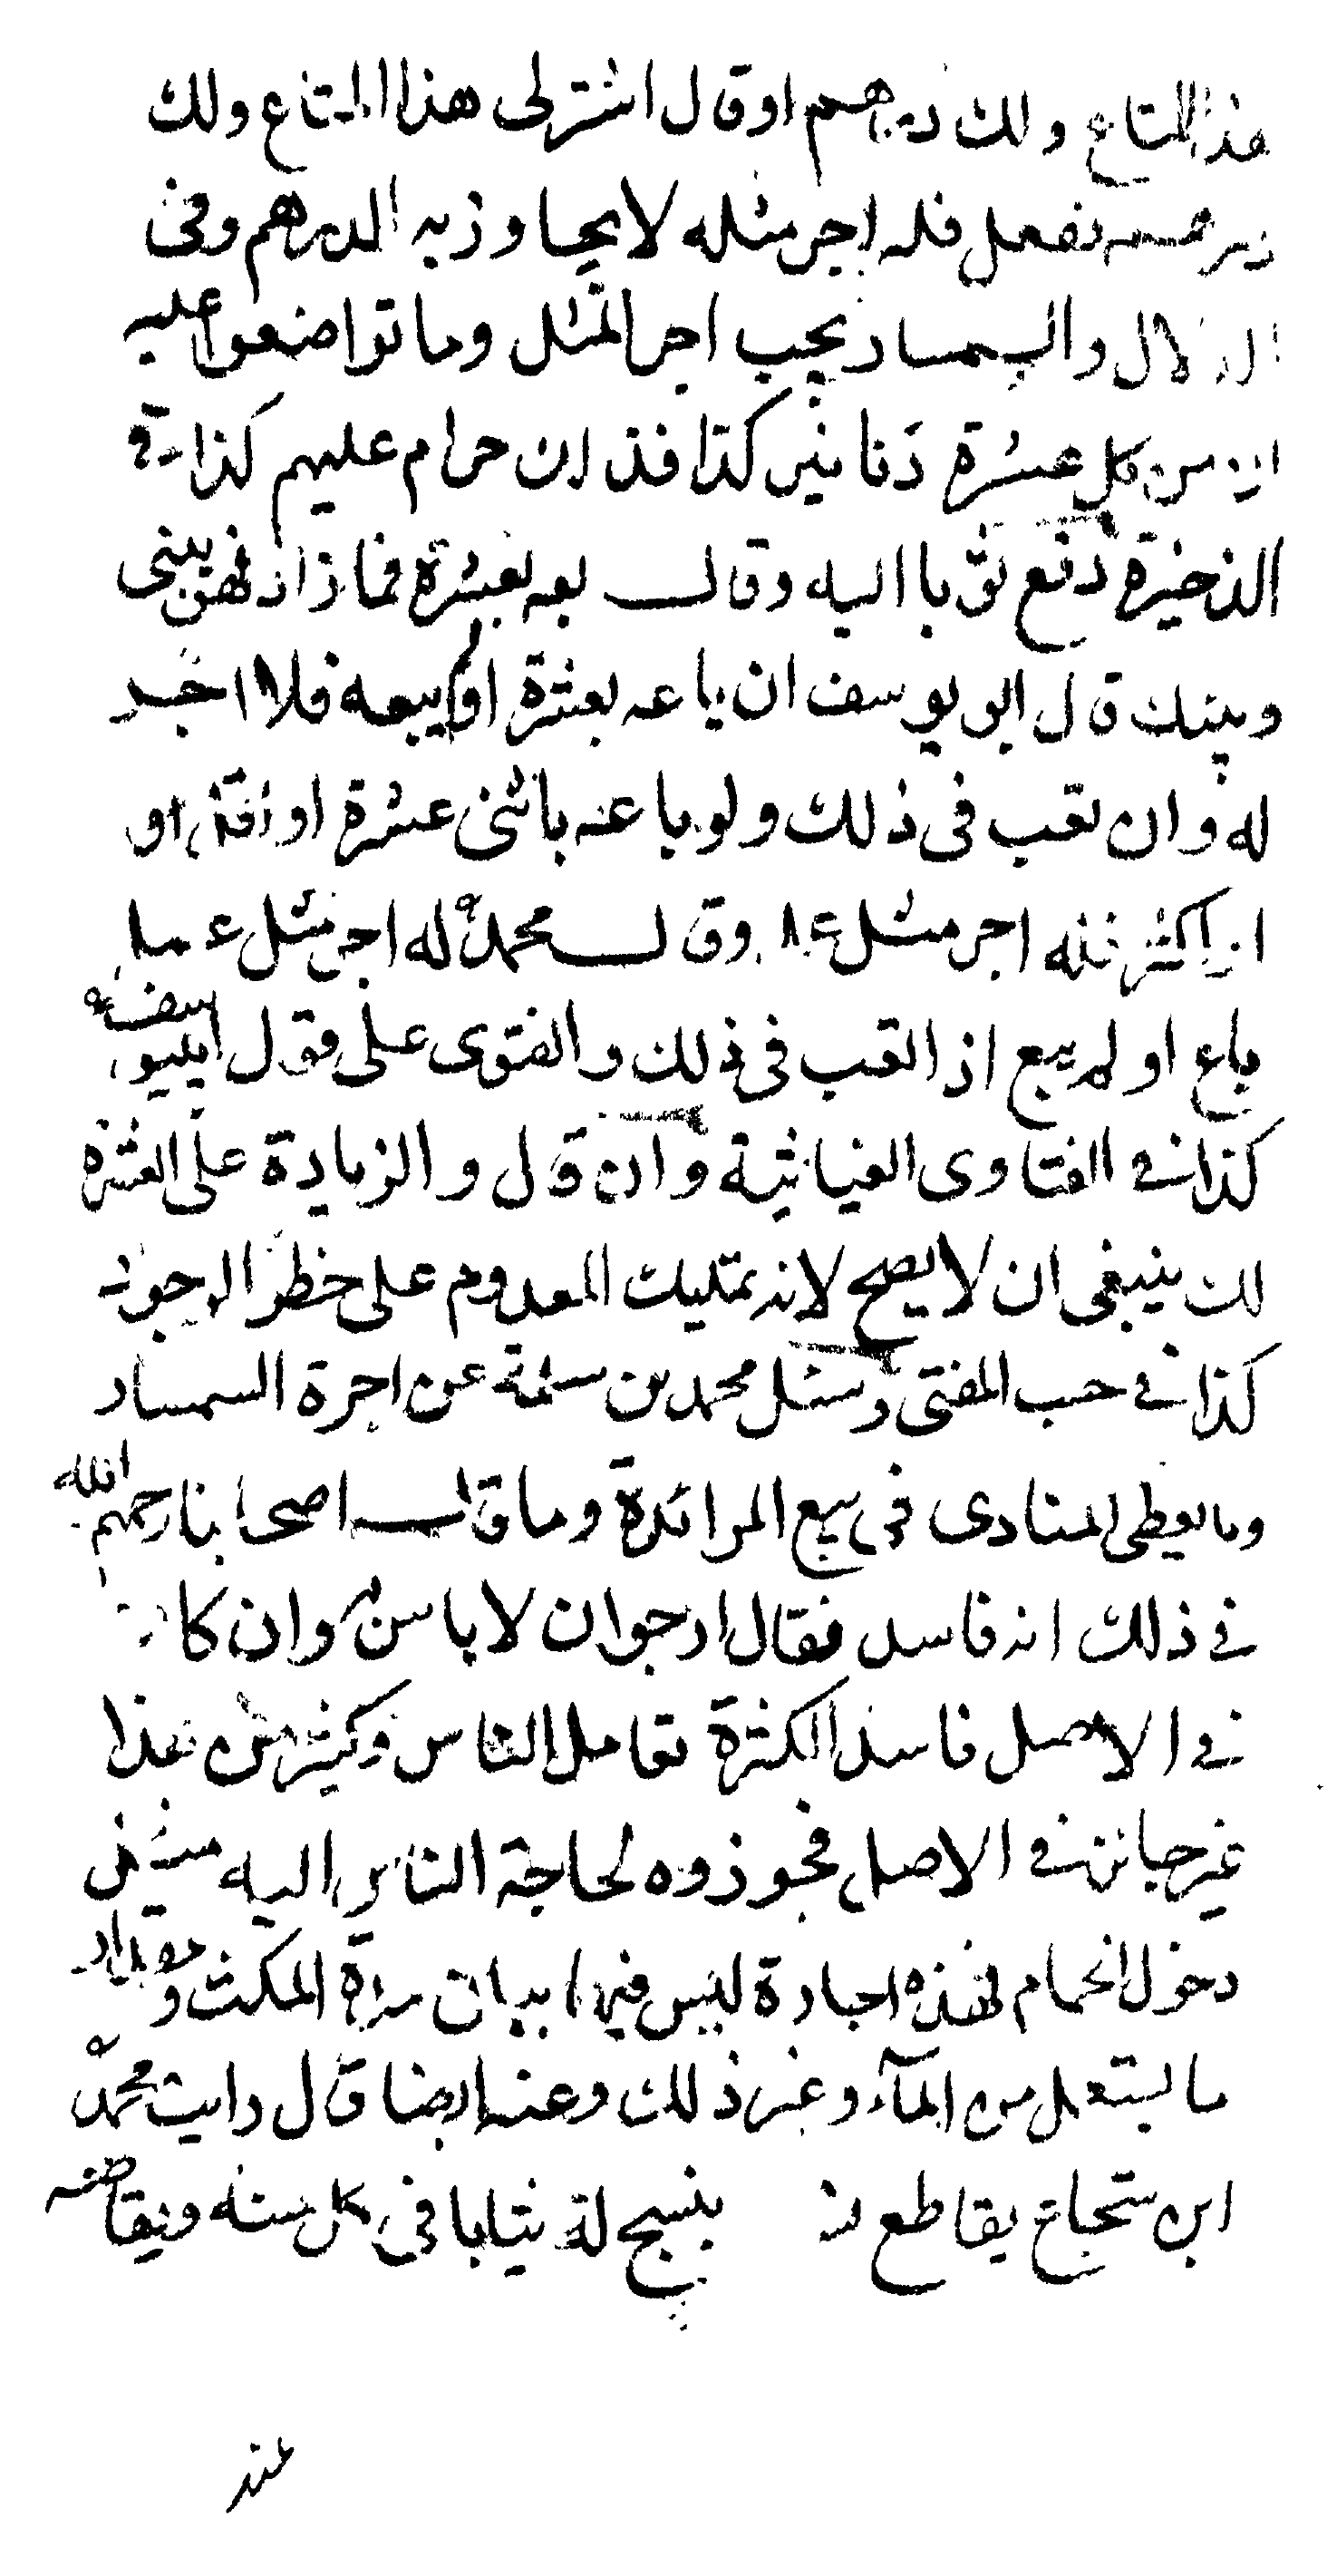 هذا المتاع ولك درهم او قال اشتر لى هذا المتاع ولك
درهم ففعل فله اجر مثله لا يجاوز به الدرهم وفى
الدلال والسمسار يجب اجر المثل وما تواضعوا عليه
ان من كل عشرة دنانير كذا فذلك حرام عليهم كذا فى
الذخيرة دفع ثوبا اليه وقال بعه بعشرة فما زاد فهو بينى
وبينك قال ابو يوسف ان باعه بعشرة او لم يبعه فلا اجر
له وان تعب فى ذلك ولو باعه باثنى عشرة او اقل او
اكثر فله اجر مثل عمله وقال محمد له اجر مثل عمله
باع او لم يبع اذا تعب فى ذلك والفتوى على قول ابى يوسف
كذا فى الفتاوى الغياثية وان قال والزيادة على العشرة
لك ينبغى ان لا يصح لانه تمليك المعدوم على خطر الوجود
كذا فى حسب المفتى وسئل محمد بن سلمة عن اجرة السمسار
وما يعطى المنادى فى بيع المزائدة وما قال اصحابنا رحمهم الله
فى ذلك انه فاسد فقال ارجو ان لا باس به وان كان
فى الاصل فاسدا لكثرة تعامل الناس وكثير من هذا
غير جائز فى الاصل فجوزوه لحاجة الناس اليه
دخول الحمام فهذه اجارة ليس فيها بيان مدة المكث ومقدار
ما يستعمل من المآء وغير ذلك وعنه ايضا قال رايت محمد
ابن شجاع يقاطع ينسج له ثيابا فى كل سنة ويقاضه
عند